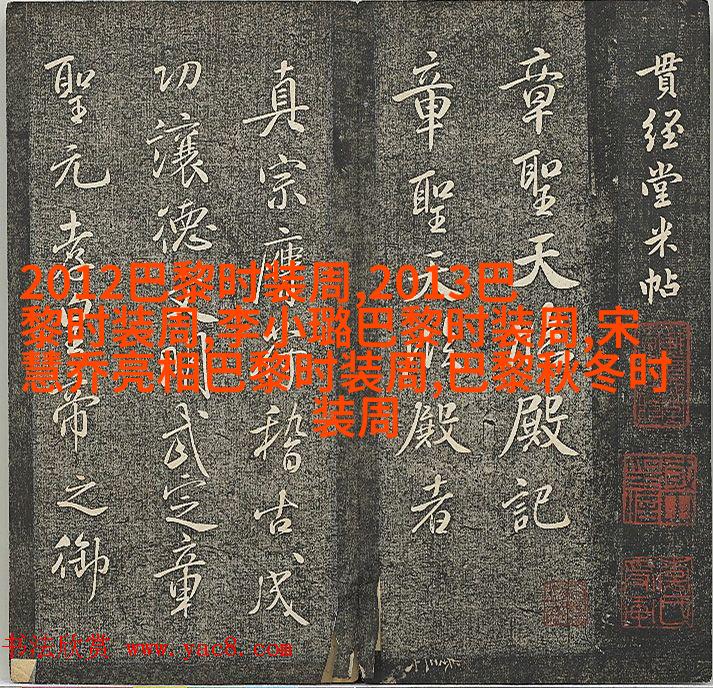 貫經堂米帖
章聖天臨殿記
章聖天臨殿者
真宗膺符稽古成
功讓德文明武定章
聖元孝皇帝之御
2012巴黎时装周,2013巴
黎时装周,李小璐巴黎时装周,宋
慧乔亮相巴黎时装周,巴黎秋冬时
装周
书法欣赏 www.yac8.com